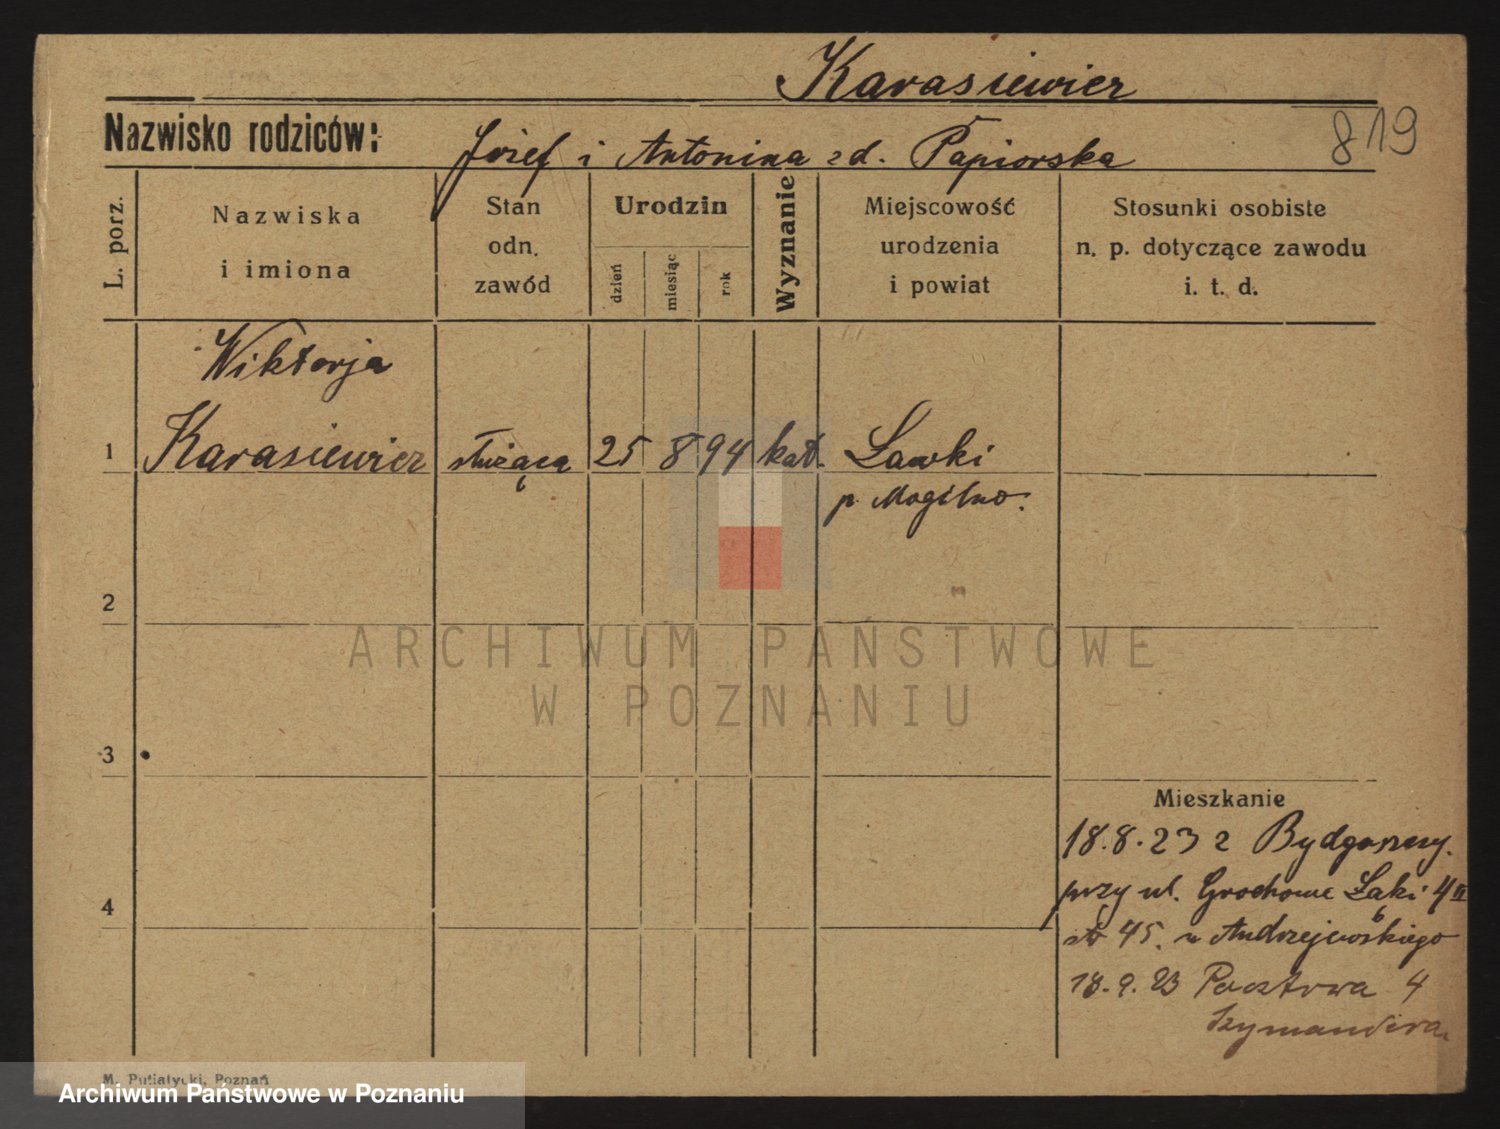 Karasiewicz
819
Nazwisko rodziców: Józef i Antonina zd. Papiorska
L. porz.
Nazwiska i imiona
Stan odn. zawód
Urodzin
dzień
miesiąc
rok
Wyznanie
Miejscowość urodzenia i powiat
Stosunki osobiste n. p. dotyczące zawodu i. t. d.
Wiktorja
1 Karasiewicz służąca 25 8 94 kat. Ławki
p. Mogilno.
2
ARCHIWUM PAŃSTWOWE
W POZNANIU
3
Mieszkanie
18.8.23 z Bydgoszczy.
4
przy ul. Grochowe Łąki 4 II
45. u Andrzejewskiego
18.9.23 Pocztowa 4
M. Putiatycki, Poznań
Archiwum Państwowe w Poznaniu